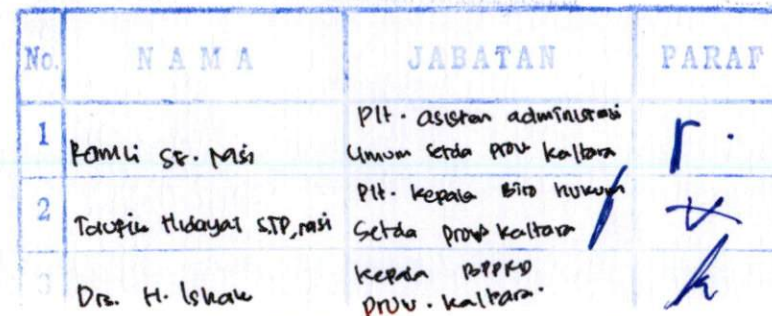 No. NAMA JABATAN PARAF
1 Ramli SE. Msi Plt. asisten administrasi
Umum Setda prov kaltara
2 Taufik Hidayat S.TP, msi Plt. Kepala Biro hukum
Setda prov kaltara
3 Drs. H. Ishak Kepala BPPRD
prov. kaltara.